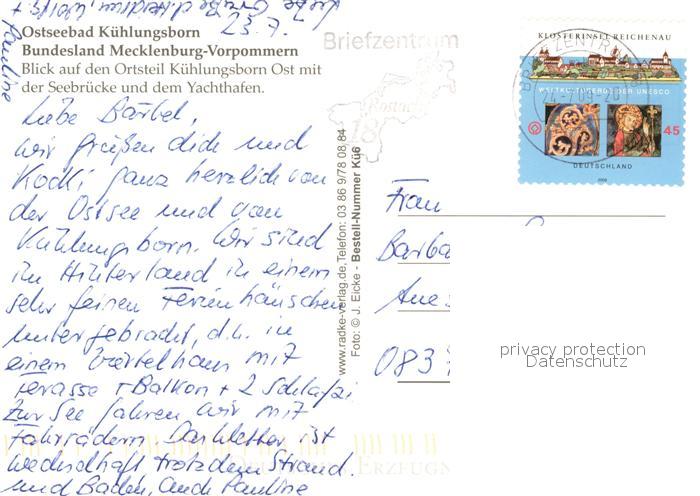 Ostseebad Kühlungsborn
Bundesland Mecklenburg-Vorpommern
Blick auf den Ortsteil Kühlungsborn Ost mit
der Seebrücke und dem Yachthafen.
23.7.
Liebe Bärbel,
wir grüßen dich und
ganz herzlich von
der Ostsee und von
Kühlungsborn. Wir sind
im Hinterland in einem
sehr feinen Ferienhäuschen
untergebracht, d.h. in
einem Viertelhaus mit
Terasse + Balkon + 2 Schlafzi
Zur See fahren wir mit
Fahrrädern. Das Wetter ist
wechselhaft trotzdem Strand
und Baden, auch Pauline
Pauline
www.radke-verlag.de, Telefon: 03 86 9/78 08 84
Foto: © J. Eicke - Bestell-Nummer Kü6
Briefzentrum
Rostock
18
KLOSTERINSEL REICHENAU
BRIEFZENTRUM
WELTKULTURERBE DER UNESCO
45
DEUTSCHLAND
2008
Frau
Barba
083
privacy protection
Datenschutz